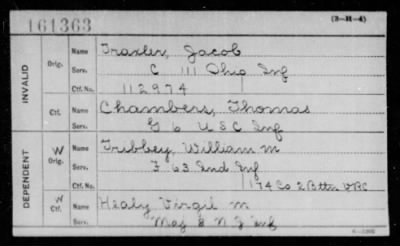 161363
(3-H-4)
INVALID
Orig.
Name Traxler, Jacob
Serv. C 111 Ohio Inf
Ctf. No. 112974
Ctf.
Name Chambers, Thomas
Serv. G 6 U S C Inf
DEPENDENT
W
Orig.
Name Tribbey, William M
Serv. F 63 Ind Inf
Ctf. No. 174 Co 2 Bttn VRC
W
Ctf.
Name Healy Virgil M
Serv. Maj 8 N J Inf